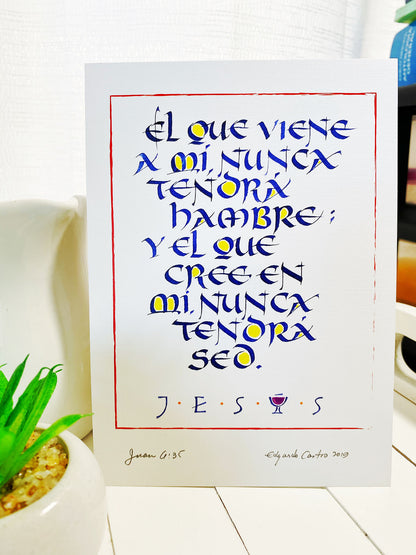 ÉL QUE VIENE
A MÍ, NUNCA
TENDRÁ
HAMBRE;
Y EL QUE
CREE EN
MÍ, NUNCA
TENDRÁ
SED.
J·E·S·Ú·S
Juan 6:35
Edgardo Castro 2019